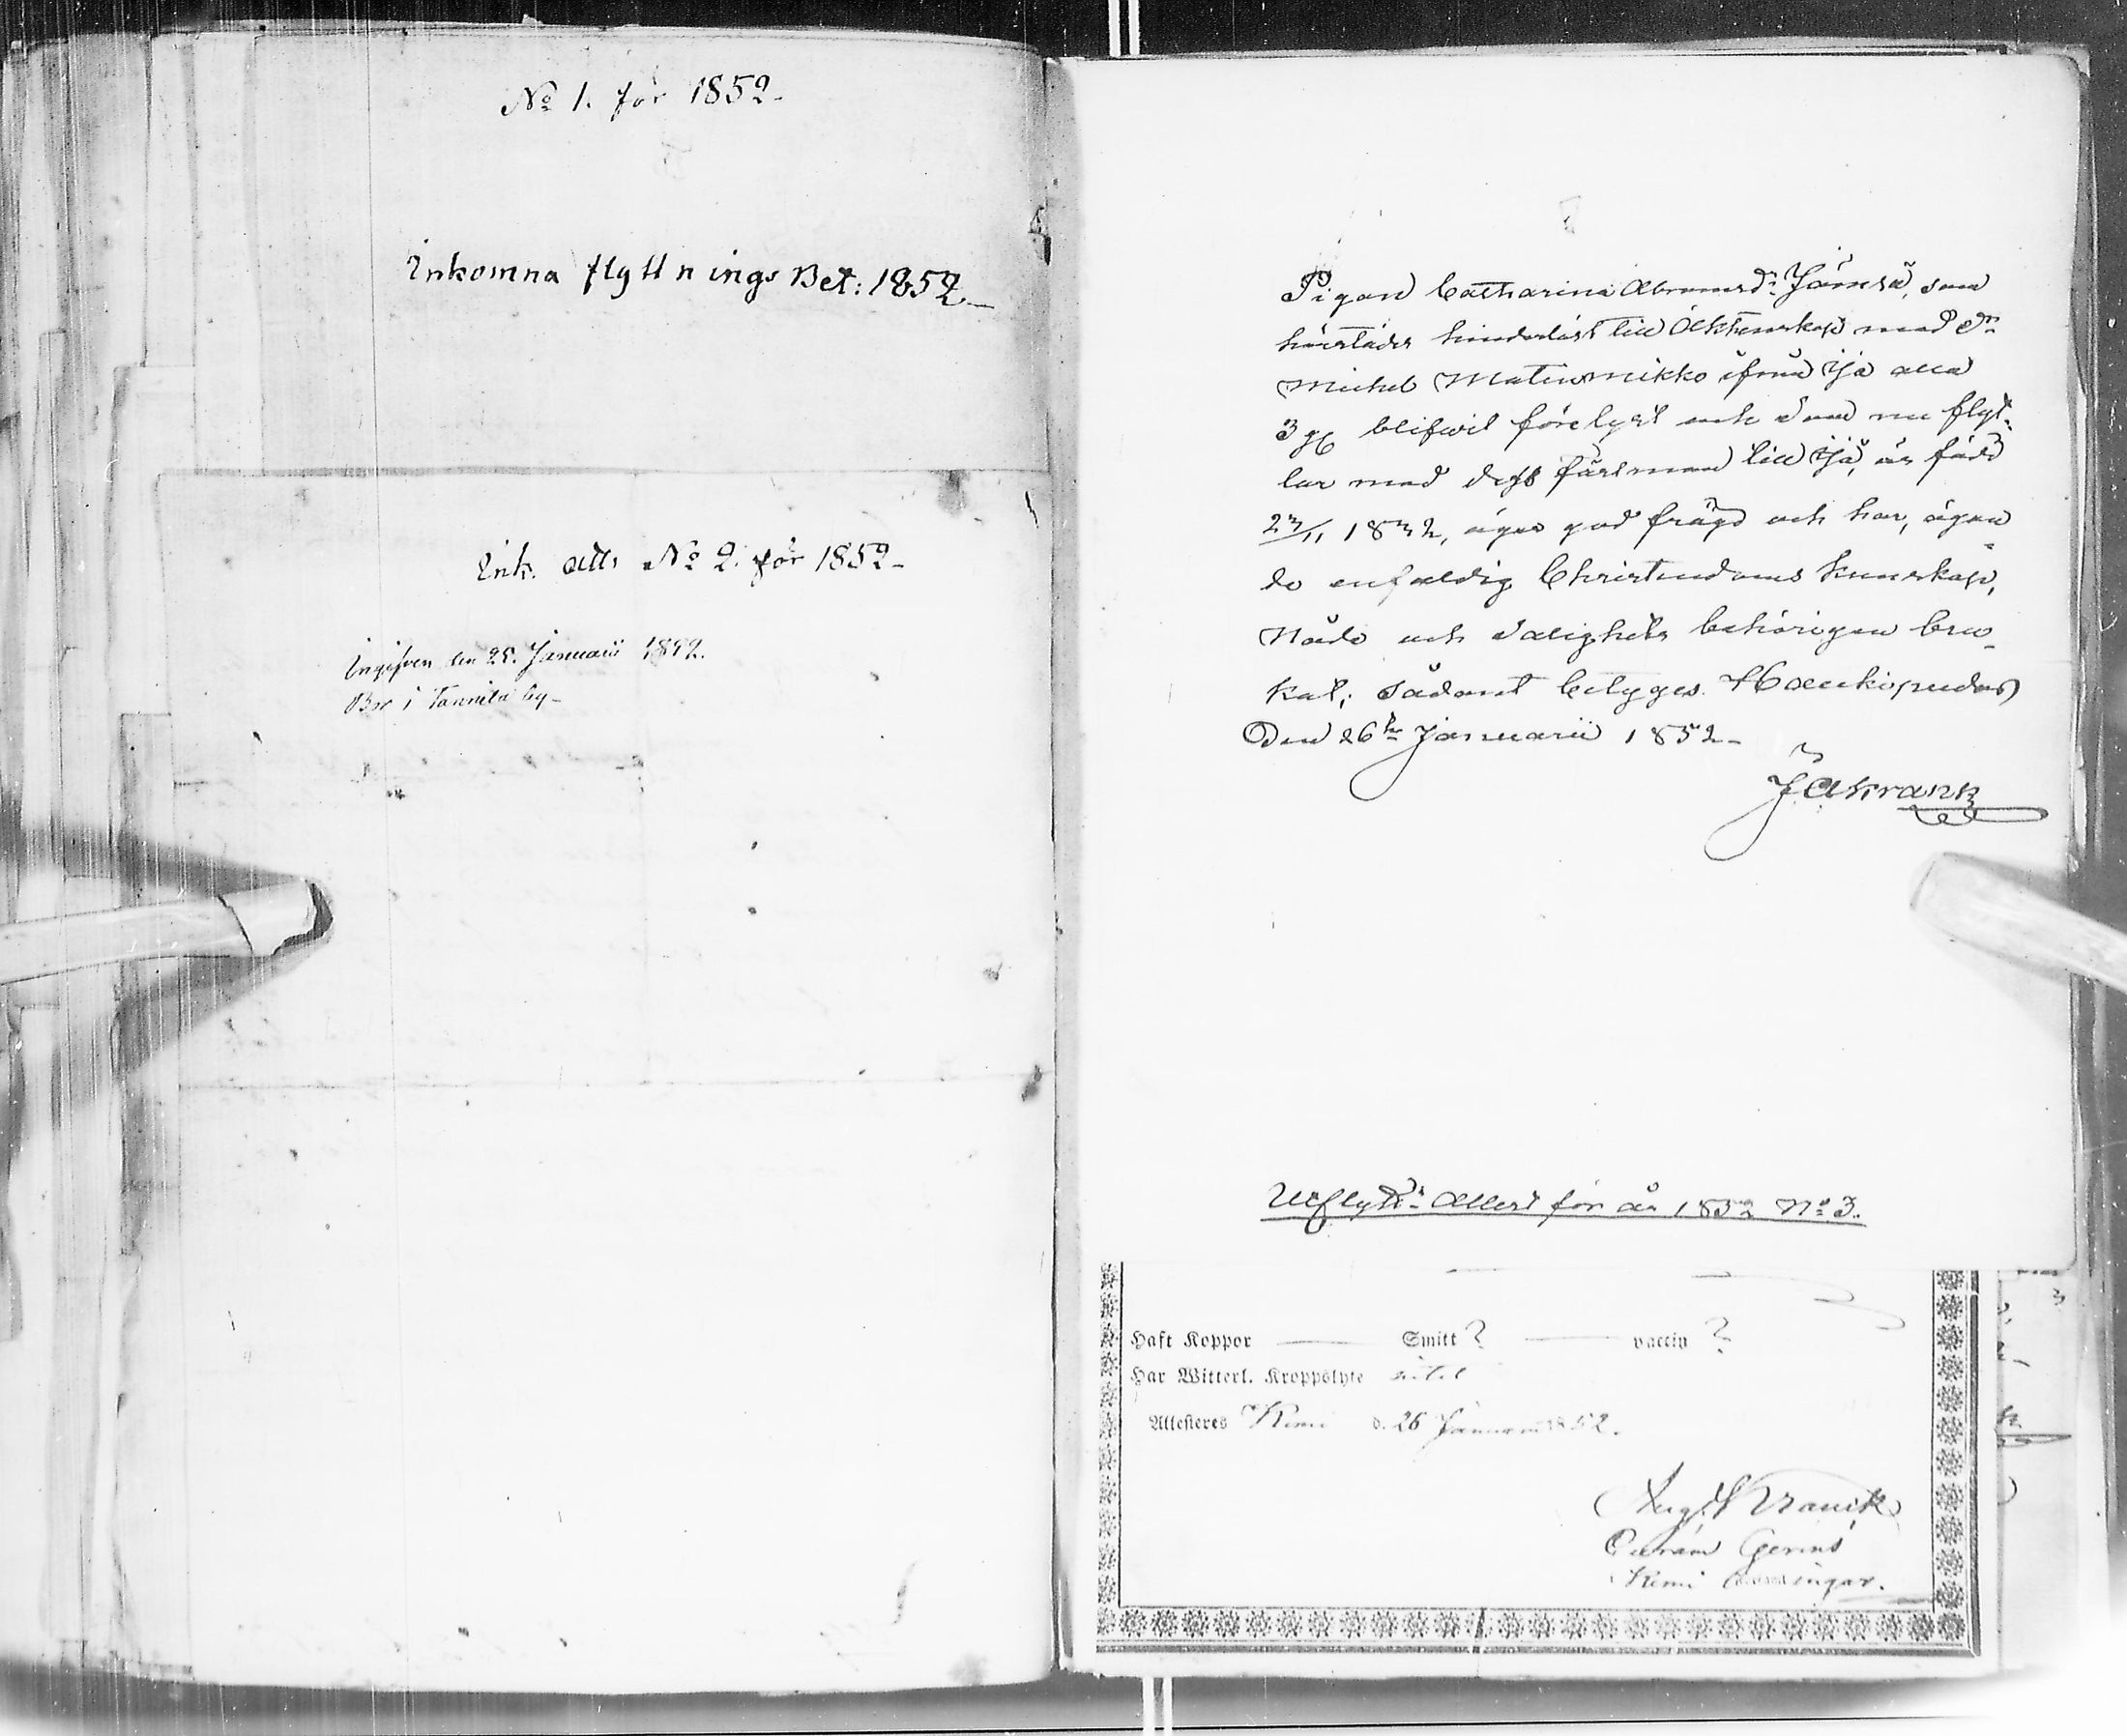 No 1. för 1852-
Inkomna flyttnings Bet: 1852.
Ink. att. No 2. för 1852-
Ingifven den 25. Januarii 1892.
Bor i Tannila by-
Pigan Catharina Abramsdr. Jämsä, som
härstädes hinderlöst till Äktenskap med dr.
Michel Matinmikko ifrån Ijå alla
3 gg blifvit förelyst och som nu flyt-
tar med dess fästman till Ijå, är född
23/11 1832, äger god frägd och har, ägan-
de enfaldig Christendoms kunskap,
Nåde och Salighets behörigen bru-
kat; sådant betyges. Haukipudas
Den 26te Januarii 1852-
J Ahrank
Utflytt. Attest för år 1852 No 3.
Haft Koppor Smitt ? vaccin ?
Har Witterl. Kroppslyte intet
Attesteres Kemi d. 26 Januarii 1852.
Kemi